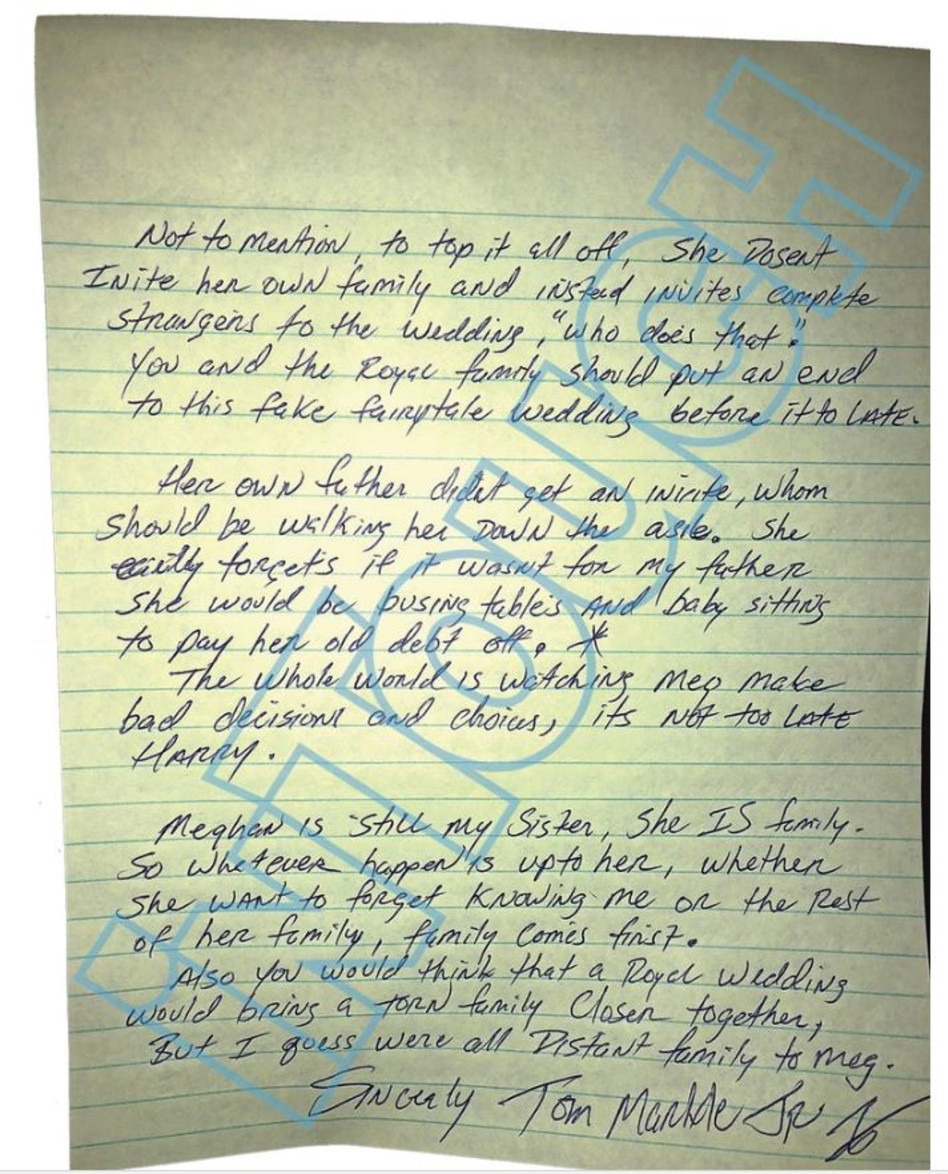 Not to mention, to top it all off, She Dosent
Inite her own family and instead invites complete
strangers to the wedding, "who does that."
You and the Royal family should put an end
to this fake fairytale wedding before it to LATE.
Her own father didnt get an inivite, whom
should be walking her Down the asile. She
forgets if it wasnt for my father
she would be busing tables AND baby sitting
to pay her old debt off. *
The whole world is watching Meg make
bad decisions and choices, its NOT too LATE
HARRY.
Meghan is still my Sister, She IS family.
So whatever happen is up to her, whether
she WANT to forget Knowing me or the Rest
of her family, family comes first.
Also you would think that a Royal wedding
would bring a torn family Closer together,
But I guess were all Distant family to Meg.
Sincerly Tom Markle Jr
INTOUCH